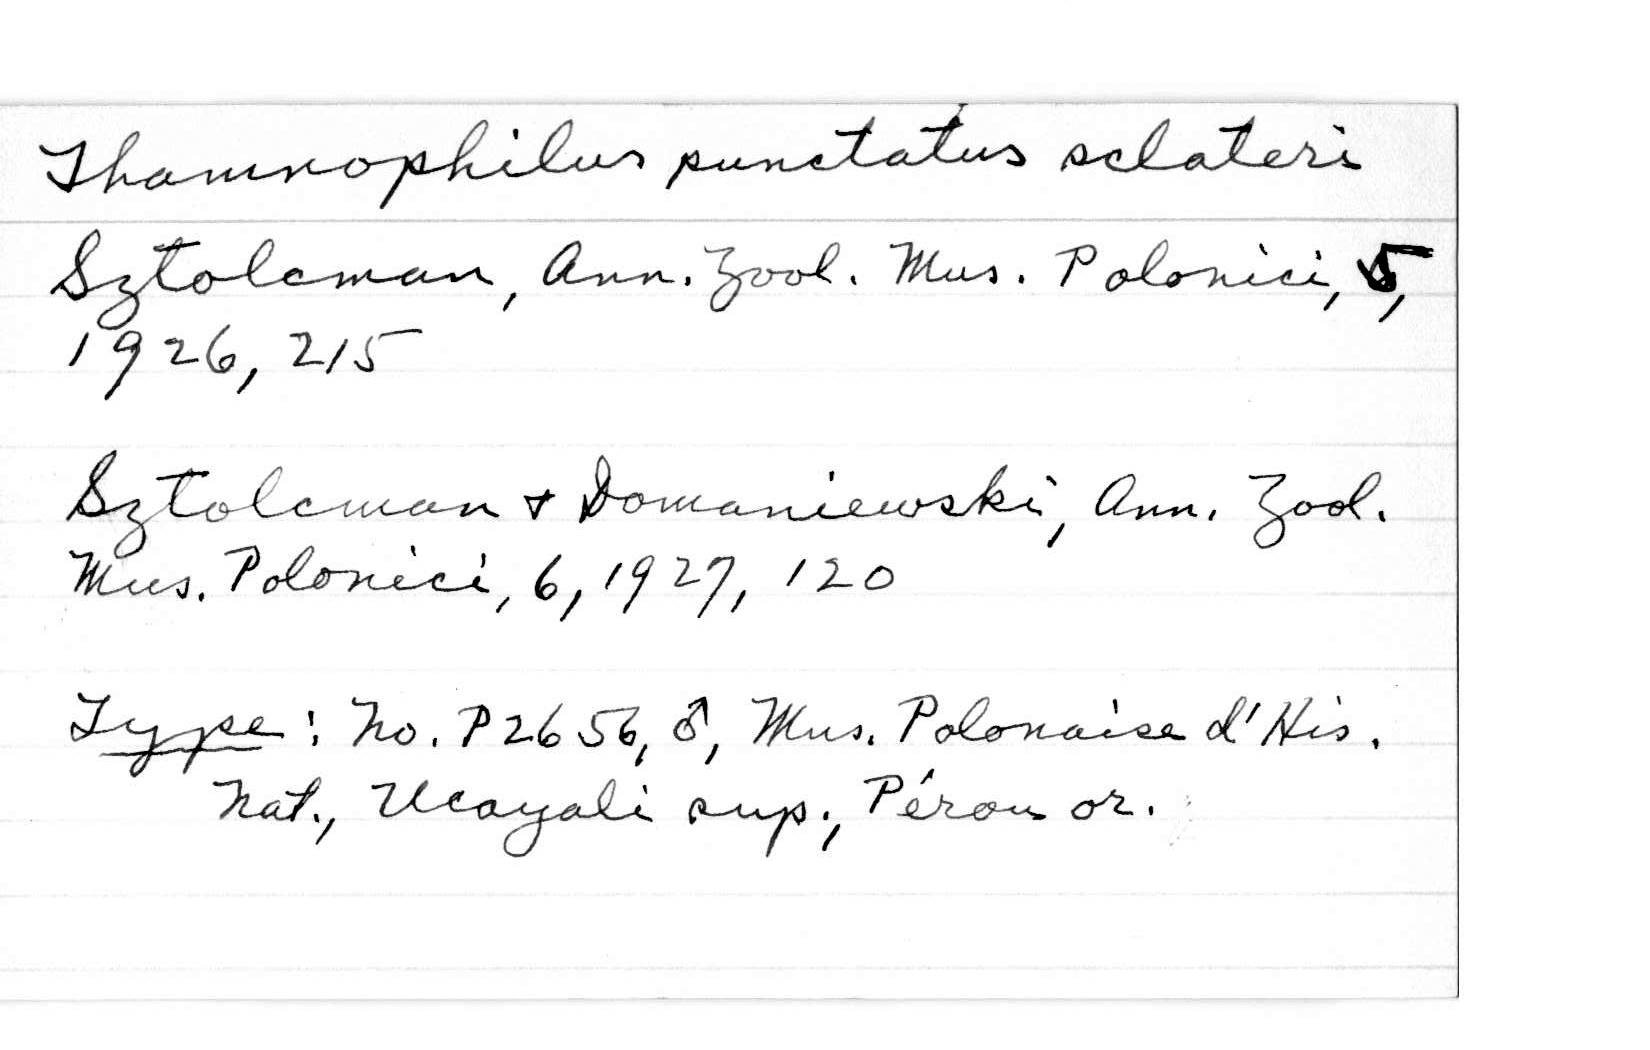 Thamnophilus punctatus sclateri
Sztolcman, Ann. Zool. Mus. Polonici, 5,
1926, 215
Sztolcman & Domaniewski, Ann. Zool.
Mus. Polonici, 6, 1927, 120
Type: No. P2656, ♂, Mus. Polonaise d'His.
Nat., Ucayali sup., Pérou or.